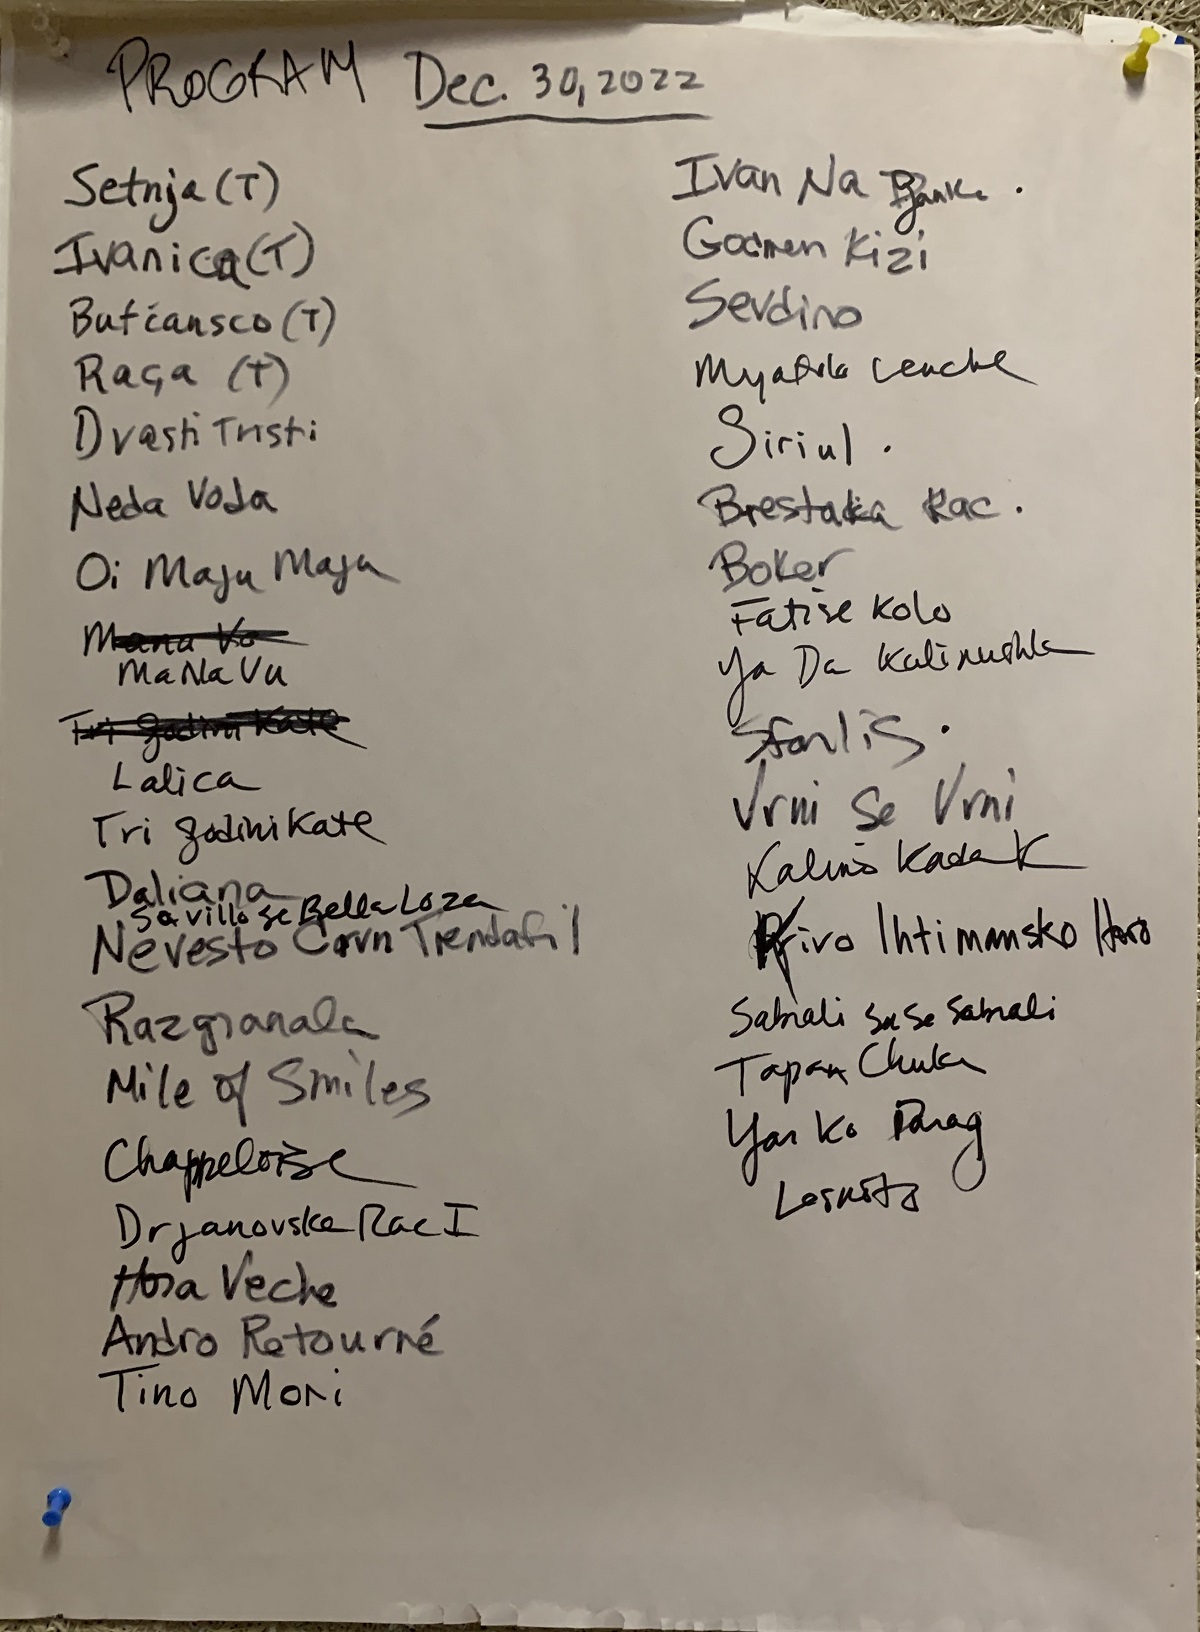 PROGRAM Dec. 30, 2022
Setnja (T)
Ivanica (T)
Bufčansco (T)
Raça (T)
Dvesti Tristi
Neda Voda
Oi Maju Maju
Mana Vo
MaNa Vu
Tri godini Kate
Lalica
Tri godini Kate
Daliana
Sa villo se Bella Loza
Nevesto Crvn Trendafil
Razgranala
Mile of Smiles
Chappeloise
Drjanovska Rac I
Hora Veche
Andro Retourné
Tino Mori
Ivan Na
Gocmen Kizi
Sevdino
Lenche
Siriul.
Brestaka Rac.
Boker
Fatise Kolo
Ya Da Kalinushka
Sfarlis.
Vrni Se Vrni
Kadak
Krivo Ihtimansko Horo
Sabrali Sa Se Sabrali
Tapan Chuka
Yanko